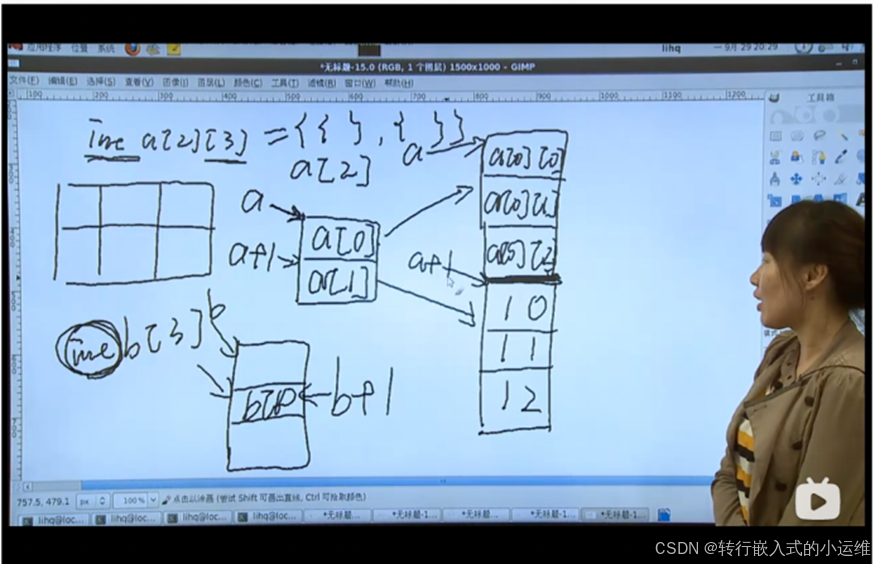 应用程序 位置 系统 lihq 一 9月 29 20:29
*无标题-15.0 (RGB, 1 个图层) 1500x1000 – GIMP
文件(F) 编辑(E) 选择(S) 查看(V) 图像(I) 图层(L) 颜色(C) 工具(T) 滤镜(R) 窗口(W) 帮助(H)
100 200 300 400 500 600 700 800 900 1000 1100 1200
工具箱
int a[2][3] = {{ }, { }}
a[2]
a
a[0][0]
a[0][1]
a[0][2]
a
a[0]
a+1
a[1]
a+1
10
11
12
int b[3]
b
b+1
757.5, 479.1 px 100% 点击以涂画 (尝试 Shift 可画出直线, Ctrl 可拾取颜色)
lihq@loc... lihq@loc... lihq@loc... lihq@loc... *无标题... *无标题-1... *无标题... *无标题-1... *无标题-1...
CSDN @转行嵌入式的小运维